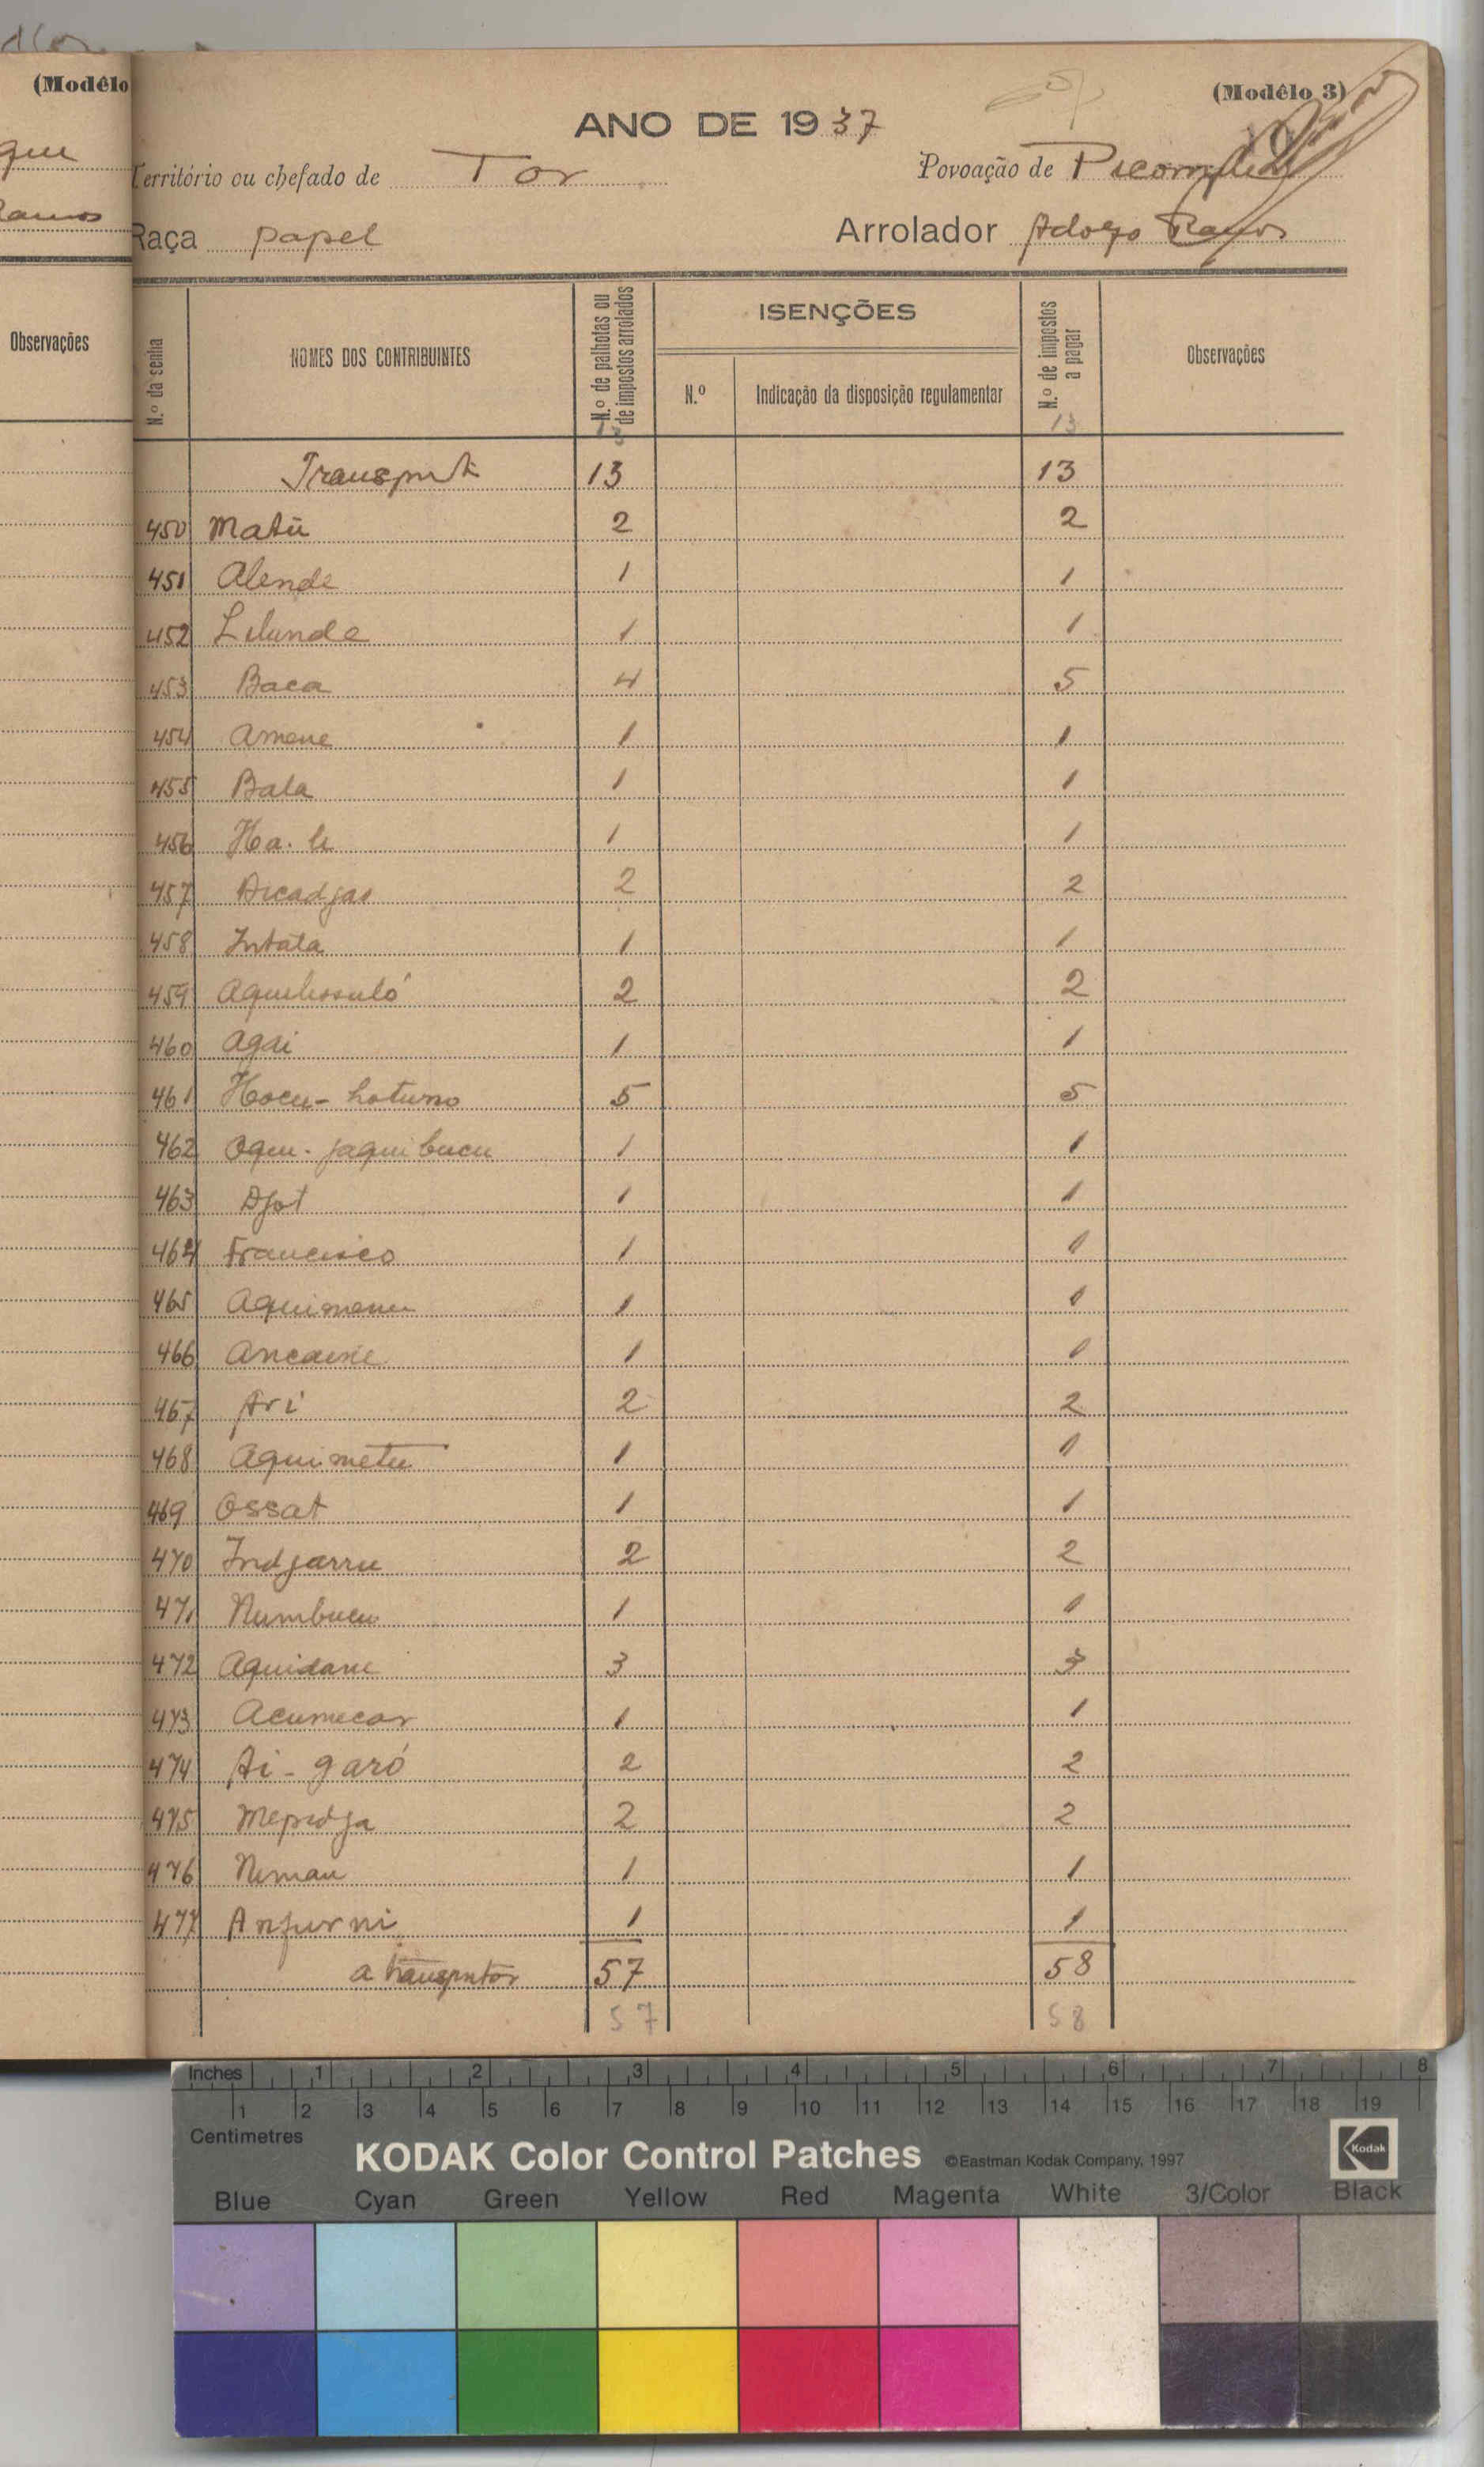 (Modêlo
(Modêlo 3)
ANO DE 1937
Território ou chefado de Tor
Povoação de
Raça papel
Arrolador Adolfo Ramos
Observações
N.º da senha
NOMES DOS CONTRIBUINTES
N.º de palhotas ou de impostos arrolados
ISENÇÕES
N.º
Indicação da disposição regulamentar
N.º de impostos a pagar
Observações
13 13
Transporte 13 13
450 Matú 2 2
451 Alende 1 1
452 Lilunde 1 1
453 Baca 4 5
454 Amone 1 1
455 Bala 1 1
456 Ha. le 1 1
457 Dicadjas 2 2
458 Intata 1 1
459 2 2
460 Agai 1 1
461 Hocu- hoturno 5 5
462 Oqui- jaquibucu 1 1
463 Djot 1 1
464 Francisco 1 1
465 Aquimanu 1 1
466 Ancaine 1 1
467 Ari 2 2
468 Aquimetu 1 1
469 Ossat 1 1
470 Indjarru 2 2
471 Numbucu 1 1
472 Aquidane 3 3
473 Acumecor 1 1
474 Ai-garó 2 2
475 Mepidja 2 2
476 Niman 1 1
477 Anfurni 1 1
a transportar 57 58
57 58
Inches 1 2 3 4 5 6 7 8
1 2 3 4 5 6 7 8 9 10 11 12 13 14 15 16 17 18 19
Centimetres
KODAK Color Control Patches ©Eastman Kodak Company, 1997 Kodak
Blue Cyan Green Yellow Red Magenta White 3/Color Black